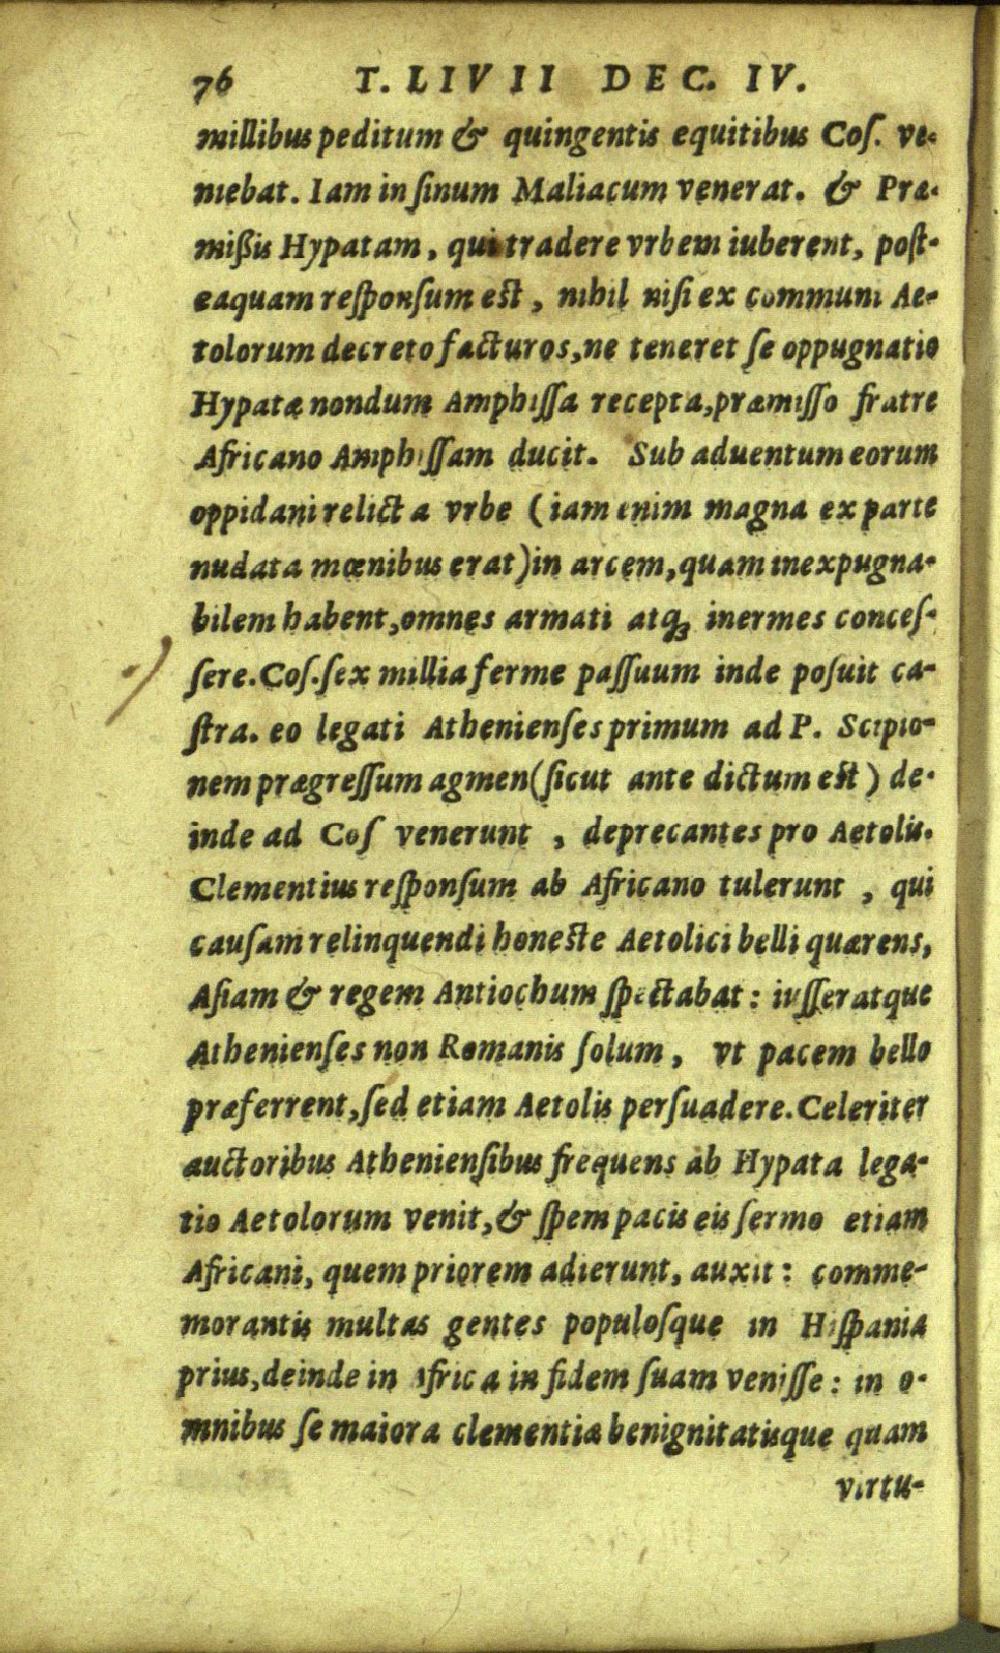 76 T. LIVII DEC. IV.
millibus peditum & quingentis equitibus Coſ. ve-
niebat. Iam in ſinum Maliacum venerat. & Præ-
mißis Hypatam, qui tradere vrbem iuberent, poſt-
eaquam reſponſum eſt, nihil niſi ex communi Ae-
tolorum decreto facturos, ne teneret ſe oppugnatio
Hypatæ nondum Amphiſſa recepta, præmiſſo fratre
Africano Amphiſſam ducit. Sub aduentum eorum
oppidani relicta vrbe (iam enim magna ex parte
nudata mœnibus erat) in arcem, quam inexpugna-
bilem habent, omnes armati atq; inermes conceſ-
ſere. Coſ. ſex millia ferme paſſuum inde poſuit ca-
ſtra. eo legati Athenienſes primum ad P. Scipio-
nem prægreſſum agmen (ſicut ante dictum eſt) de-
inde ad Coſ venerunt, deprecantes pro Aetolis.
Clementius reſponſum ab Africano tulerunt, qui
cauſam relinquendi honeſte Aetolici belli quærens,
Aſiam & regem Antiochum ſpectabat: iuſſeratque
Athenienſes non Romanis ſolum, vt pacem bello
præferrent, ſed etiam Aetolis perſuadere. Celeriter
auctoribus Athenienſibus frequens ab Hypata lega-
tio Aetolorum venit, & ſpem pacis eis ſermo etiam
Africani, quem priorem adierunt, auxit: comme-
morantis multas gentes populoſque in Hiſpania
prius, deinde in Africa in fidem ſuam veniſſe: in o-
mnibus ſe maiora clementiæ benignitatisque quam
virtu-